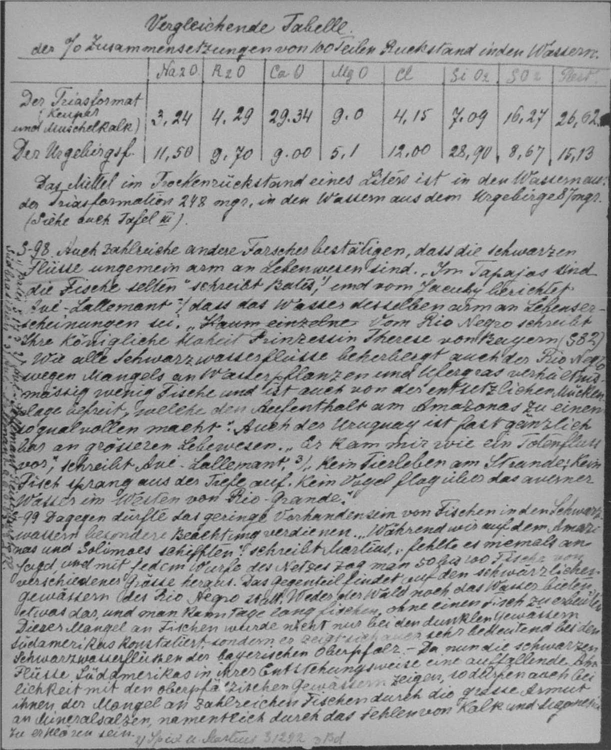 Vergleichende Tabelle.
der % Zusammensetzungen von 100 Teilen Rückstand in den Wassern.
Na2O K2O CaO MgO Cl SiO2 SO2 Rest.
Der Triasformat
(Keuper
und Muschelkalk) 3,24 4,29 29.34 9.0 4,15 7.09 16,27 26,62
Der Urgebirgsf. 11,50 9,70 9.00 5,1 12,00 28,90 8,67 15,13
Das Mittel im Trockenrückstand eines Liters ist in den Wassern aus
der Triasformation 248 mgr, in den Wassern aus dem Urgebirge 87 mgr.
(Siehe auch Tafel III).
3-98. Auch zahlreiche andere Forscher bestätigen, dass die schwarzen
Flüsse ungemein arm an Lebewesen sind. „Im Tapajas sind
die Fische selten" schreibt Bates, und vom Jacuhy berichtet
Avé-Lallemant dass das Wasser desselben arm an Lebenser-
scheinungen sei. „Kaum einzelne Vom Rio Negro schreibt
Ihre königliche Hoheit Prinzessin Therese von Bayern (S82)
„Wie alle Schwarzwasserflüsse beherbergt auch der Rio Negro
wegen Mangels an Wasserpflanzen und Ufergras verhältnis
mässig wenig Fische und ist auch von der entsetzlichen Mücken
plage befreit, welche den Aufenthalt am Amazonas zu einem
so qualvollen macht". Auch der Uruguay ist fast gänzlich
bar an grösseren Lebewesen. „Er kam mir wie ein Totenfluss
vor", schreibt Avé-Lallemant 3), kein Tierleben am Strande, kein
Fisch sprang aus der Tiefe auf. Kein Vogel flog über das averner
Wasser im Westen von Rio-Grande."
-99 Dagegen dürfte das geringe Vorhandensein von Fischen in den Schwarz
wassern besondere Beachtung verdienen. „Während wir auf dem Amazo
nas und Solimoes schifften", schreibt Martius, „fehlte es niemals an
Jagd und mit jedem Wurfe des Netzes zog man 50 bis 100 Fische von
verschiedener Grösse heraus. Das Gegenteil findet auf den schwärzlichen
gewässern (der Rio Negro statt. Weder der Wald noch das Wasser bieten
etwas dar, und man kann tage lang fischen, ohne einen Fisch zu
Dieser Mangel an Fischen wurde nicht nur bei den dunklen Gewässern
Südamerikas konstatiert, sondern er zeigt sich auch sehr bedeutend bei den
Schwarzwasserflüssen der bayerischen Oberpfalz. - Da nun die schwarzen
Flüsse Südamerikas in ihrer Entstehungsweise eine auffallende Ähn
lichkeit mit den oberpfälzischen Gewässern zeigen, so dürfen auch bei
ihnen der Mangel an zahlreichen Fischen durch die grosse Armut
an Mineralsalzen, namentlich durch das Fehlen von Kalk und Magnesia
zu erklären sein.
1) Spix u. Martius S 1292 3 Bd